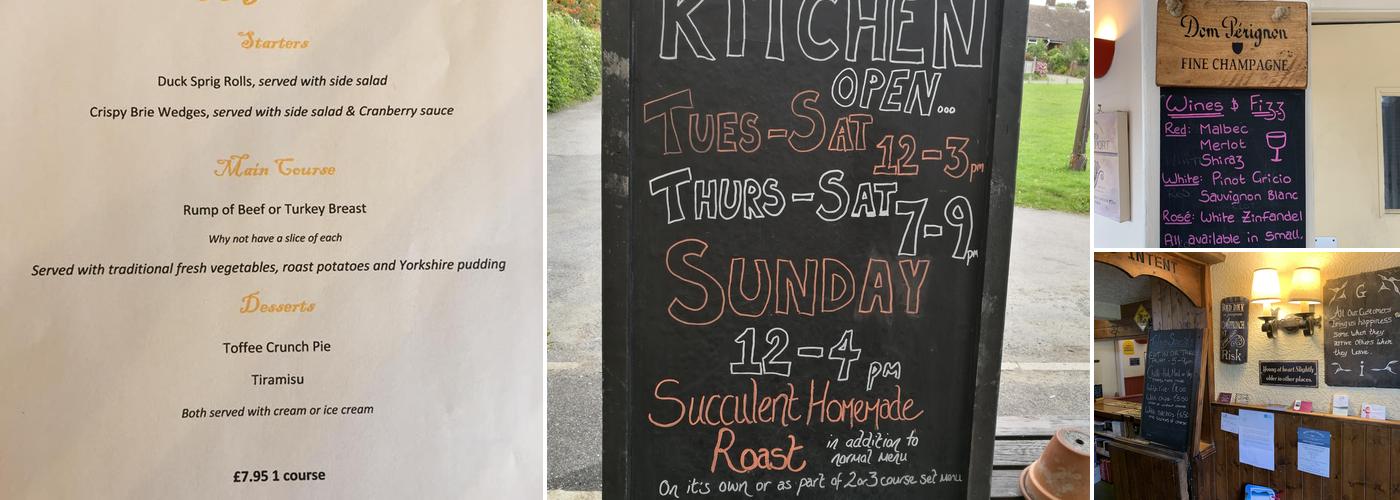 Starters
Duck Sprig Rolls, served with side salad
Crispy Brie Wedges, served with side salad & Cranberry sauce
Main Course
Rump of Beef or Turkey Breast
Why not have a slice of each
Served with traditional fresh vegetables, roast potatoes and Yorkshire pudding
Desserts
Toffee Crunch Pie
Tiramisu
Both served with cream or ice cream
£7.95 1 course
KITCHEN
OPEN...
TUES-SAT
12-3pm
THURS-SAT
7-9pm
SUNDAY
12-4pm
Succulent Homemade
Roast in addition to
normal menu
On it's own or as part of 2or3 course set menu
Dom Pérignon
FINE CHAMPAGNE
Wines & Fizz
Red: Malbec
Merlot
Shiraz
White: Pinot Gricio
Sauvignon Blanc
Rosé: White Zinfandel
All available in small,
INTENT
Risk
G
All Our Customers
bring us happiness
some when they
arrive others when
they leave.
I
Young at heart Slightly
older in other places.